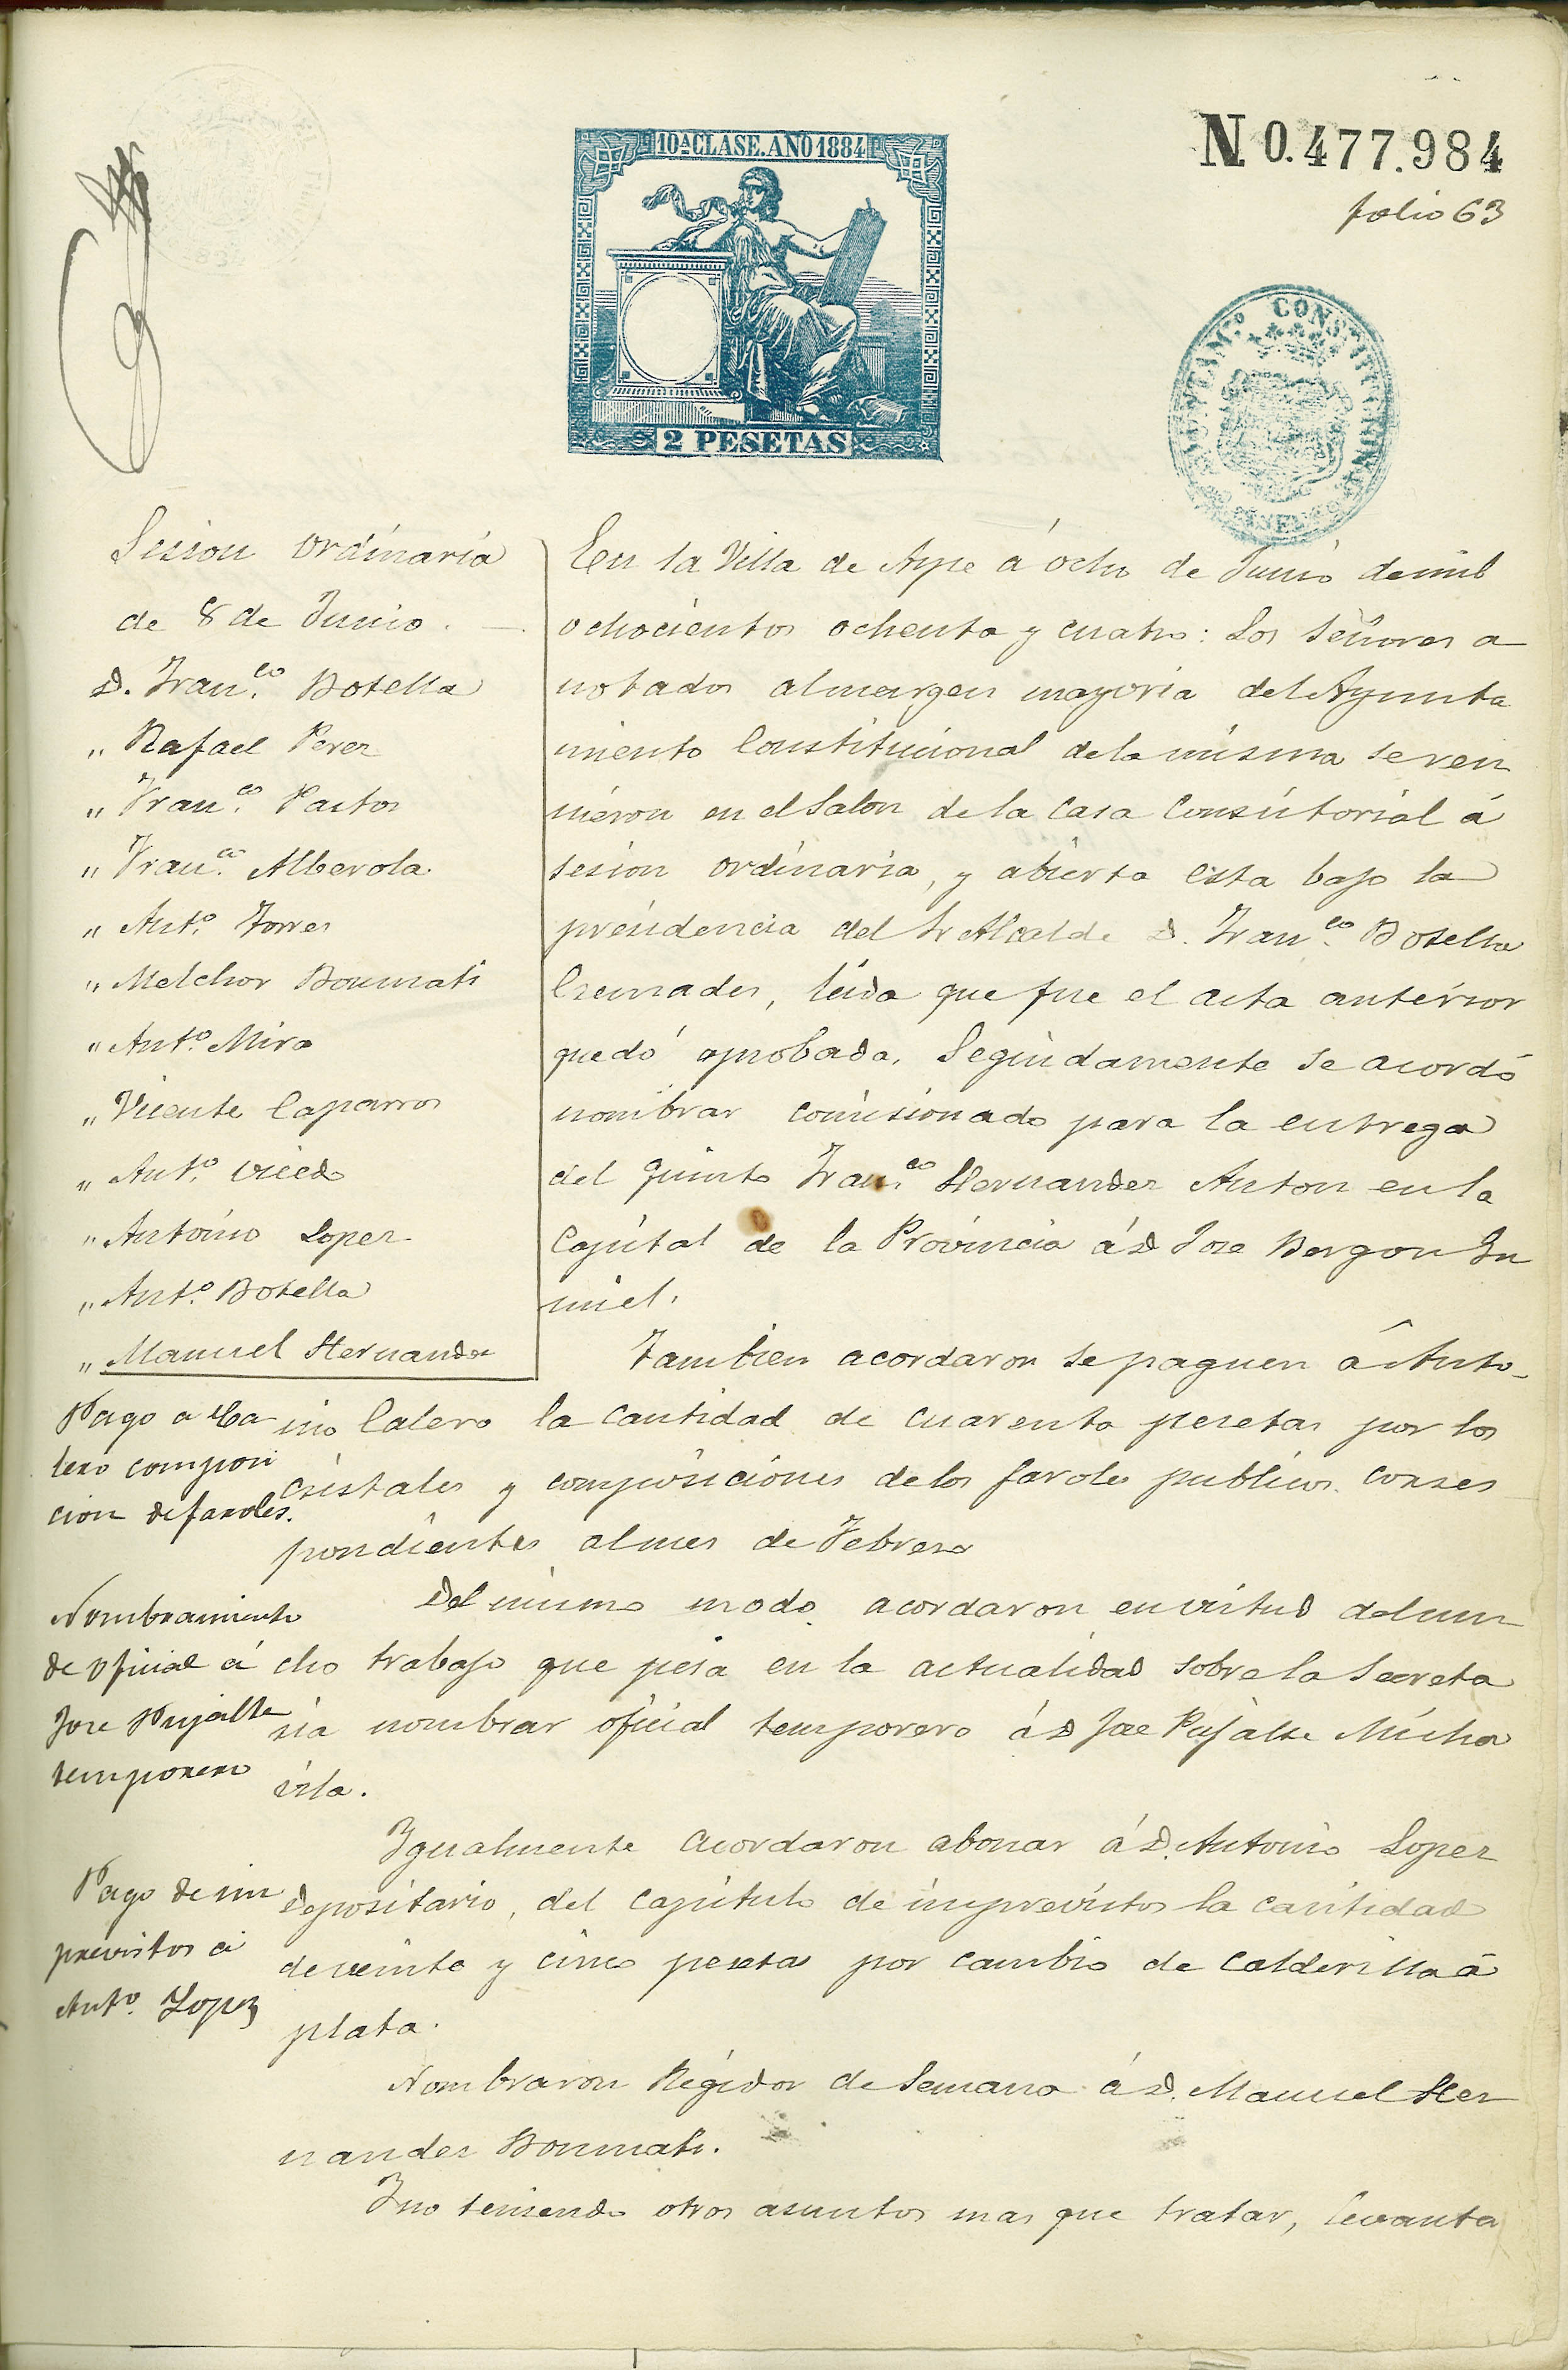 10ª CLASE. AÑO 1884
2 PESETAS
N 0.477.984
folio 63
AYUNTAM.º CONSTITUCIONAL
Sesion ordinaria
de 8 de Junio.
D. Fran.co Botella
" Rafael Perez
" Fran.co Pastor
" Fran.co Alberola
" Ant.o Torres
" Melchor Bonmati
" Ant.o Mira
" Vicente Caparros
" Ant.o
" Antonio Lopez
" Ant.o Botella
" Manuel Hernandez
En la Villa de Aspe á ocho de Junio de mil
ochocientos ochenta y cuatro: Los Señores a
notados al margen mayoria del Ayunta
miento Constitucional de la misma se reu
nieron en el Salon de la Casa Consistorial á
sesion ordinaria, y abierta esta bajo la
presidencia del Sr Alcalde D. Fran.co Botella
Cremades, leida que fue el acta anterior
quedó aprobada. Seguidamente se acordó
nombrar comisionado para la entrega
del quinto Fran.co Hernandez Anton en la
Capital de la Provincia á D Jose Borgon Ju
miel.
Tambien acordaron se paguen á Anto-
nio Calero la cantidad de cuarenta pesetas por los
cristales y composiciones de los faroles publicos corres
pondientes al mes de Febrero
Del mismo modo acordaron en virtud del mu
cho trabajo que pesa en la actualidad sobre la Secreta
ria nombrar oficial temporero á D Jose Pujalte Micha
vila.
Igualmente acordaron abonar á D. Antonio Lopez
Depositario, del Capitulo de imprevistos la cantidad
de veinte y cinco pesetas por cambio de Calderilla á
plata.
Nombraron Regidor de Semana á D. Manuel Her
nandez Bonmati.
Y no teniendo otros asuntos mas que tratar, levanta
Pago a Ca
lero composi
cion de faroles.
Nombramiento
de oficial á
Jose Pujalte
temporero
Pago de im
previstos á
Ant.o Lopez